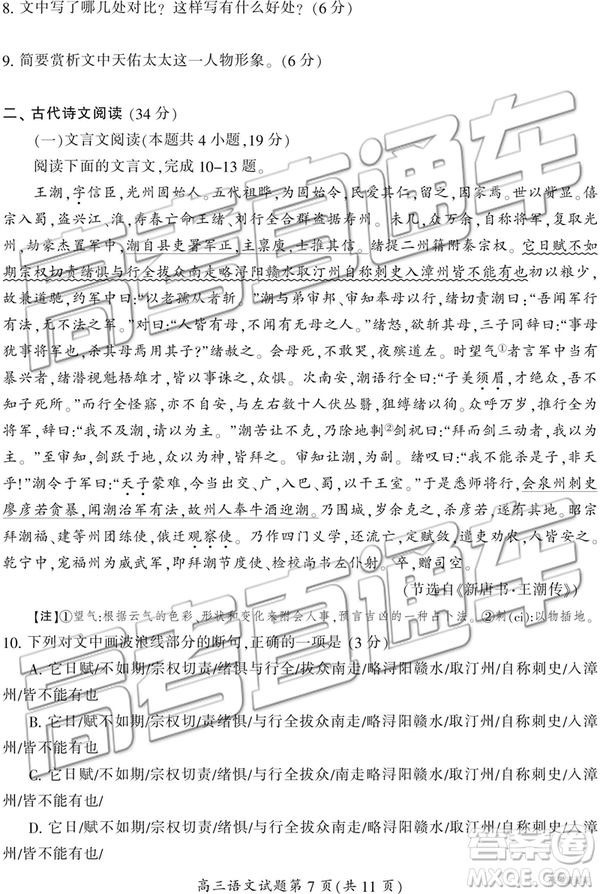 8. 文中写了哪几处对比？这样写有什么好处？(6分)
9. 简要赏析文中天佑太太这一人物形象。(6分)
二、古代诗文阅读(34分)
(一)文言文阅读(本题共4小题,19分)
阅读下面的文言文,完成10-13题。
王潮,字信臣,光州固始人。五代祖晔,为固始令,民爱其仁,留之,因家焉。世以赀显。僖
宗入蜀,盗兴江、淮,寿春亡命王绪、刘行全合群盗据寿州。未几,众万余,自称将军,复取光
州,劫豪杰置军中,潮自县吏署军正,主禀庾,士推其信。绪提二州籍附秦宗权。它日赋不如
期宗权切责绪惧与行全拔众南走略浔阳赣水取汀州自称刺史入漳州皆不能有也初以粮少,
故兼道驰,约军中曰:“以老孺从者斩。”潮与弟审邦、审知奉母以行,绪切责潮曰:“吾闻军行
有法,无不法之军。”对曰:“人皆有母,不闻有无母之人。”绪怒,欲斩其母,三子同辞曰:“事母
犹事将军也,杀其母焉用其子?”绪赦之。会母死,不敢哭,夜殡道左。时望气①者言军中当有
暴兴者,绪潜视魁梧雄才,皆以事诛之,众惧。次南安,潮语行全曰:“子美须眉,才绝众,吾不
知子死所。”行全怪寤,亦不自安,与左右数十人伏丛翳,狙缚绪以徇。众呼万岁,推行全为将
军,辞曰:“我不及潮,请以为主。”潮苦让不克,乃除地剚②剑祝曰:“拜而剑三动者,我以为
主。”至审知,剑跃于地,众以为神,皆拜之。审知让潮,自为副。绪叹曰:“我不能杀是子,非天
乎!”潮令于军曰:“天子蒙难,今当出交、广,入巴、蜀,以干王室。”于是悉师将行,会泉州刺史
廖彦若贪暴,闻潮治军有法,故州人奉牛酒迎潮。乃围城,岁余克之,杀彦若,遂有其地。昭宗
拜潮福、建等州团练使,俄迁观察使。乃作四门义学,还流亡,定赋敛,遣吏劝农,人皆安之。
乾宁中,宠福州为威武军,即拜潮节度使、检校尚书左仆射。卒,赠司空。
(节选自《新唐书·王潮传》)
【注】①望气:根据云气的色彩、形状和变化来附会人事,预言吉凶的一种占卜法。②剚(cì):以物插地。
10. 下列对文中画波浪线部分的断句,正确的一项是 (3分)
A. 它日赋/不如期/宗权切责/绪惧/与行全拔众南走/略浔阳赣水/取汀州/自称刺史/入漳
州/皆不能有也
B. 它日/赋不如期/宗权切/责绪惧/与行全拔众南走/略浔阳赣水/取汀州/自称刺史/入漳
州/皆不能有也
C. 它日赋/不如期/宗权切责/绪惧/与行全拔众/南走略浔阳赣水/取汀州/自称刺史/入漳州/
皆不能有也/
D. 它日/赋不如期/宗权切责/绪惧/与行全拔众南走/略浔阳赣水/取汀州/自称刺史/入漳
州/皆不能有也/
高三语文试题第7页(共11页)
高考直通车
高考直通车